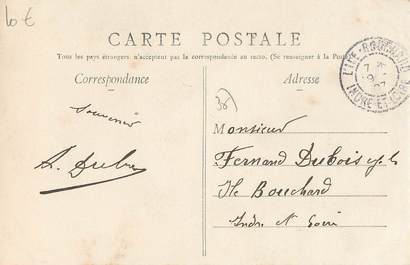 10 €
CARTE POSTALE
Tous les pays étrangers n'acceptent pas la correspondance au recto. (Se renseigner à la Poste)
Correspondance
Adresse
L'ILE-BOUCHARD
INDRE-ET-LOIRE
souvenir
Monsieur
Fernand Dubois
Ile Bouchard
Indre et Loire